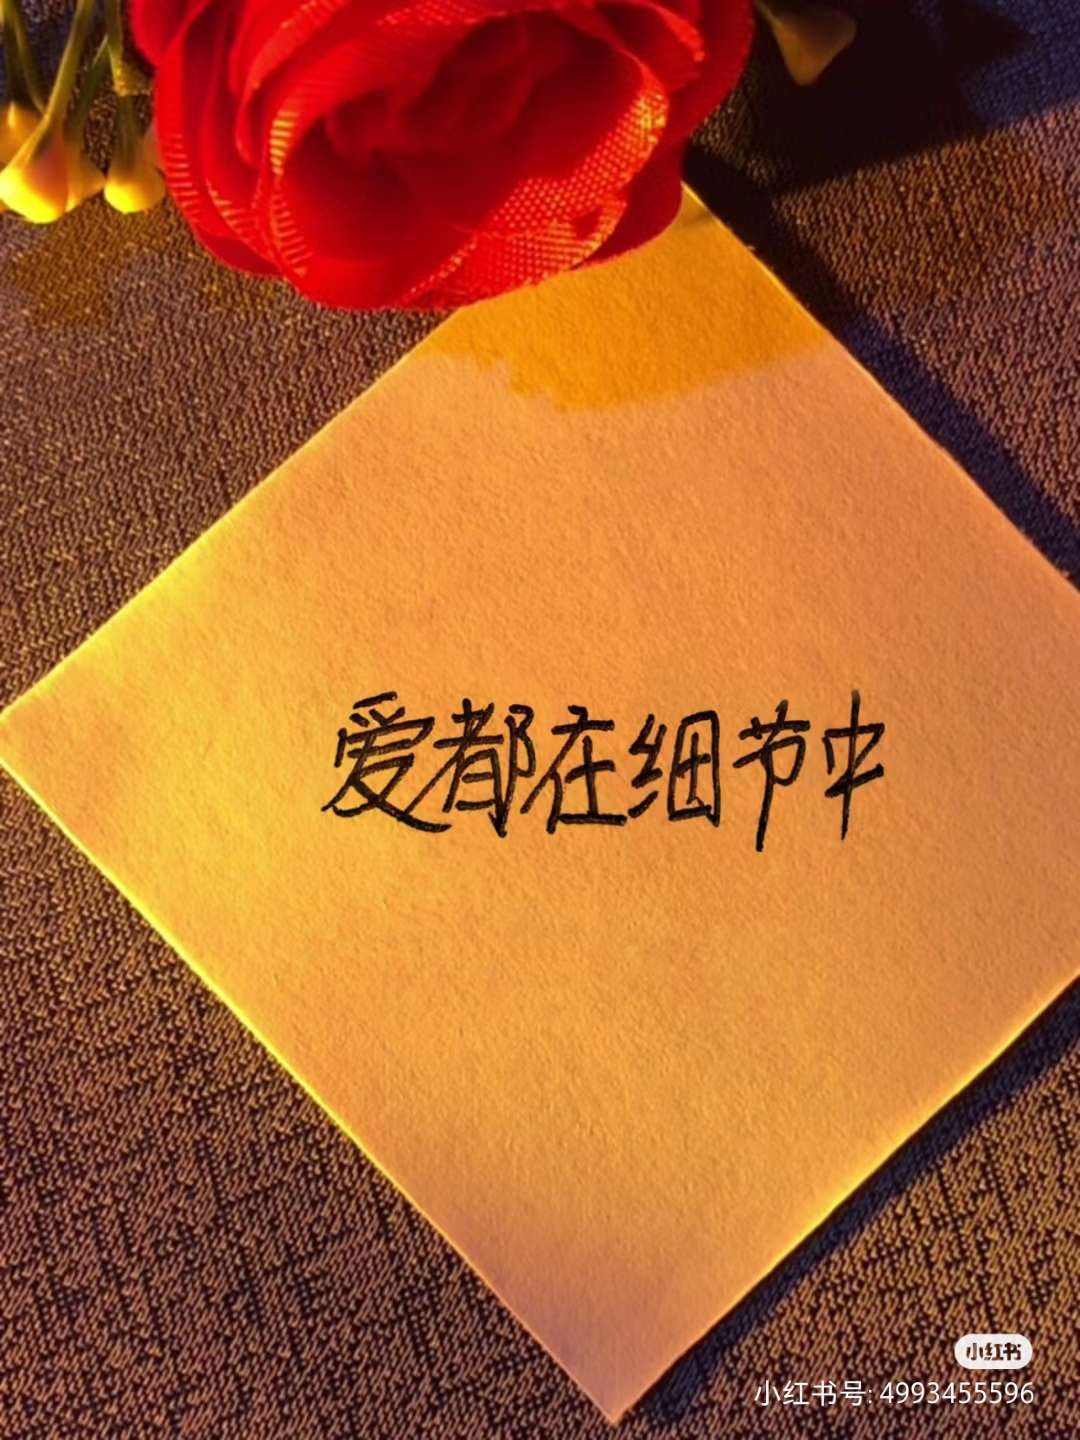 爱都在细节中
小红书
小红书号: 4993455596